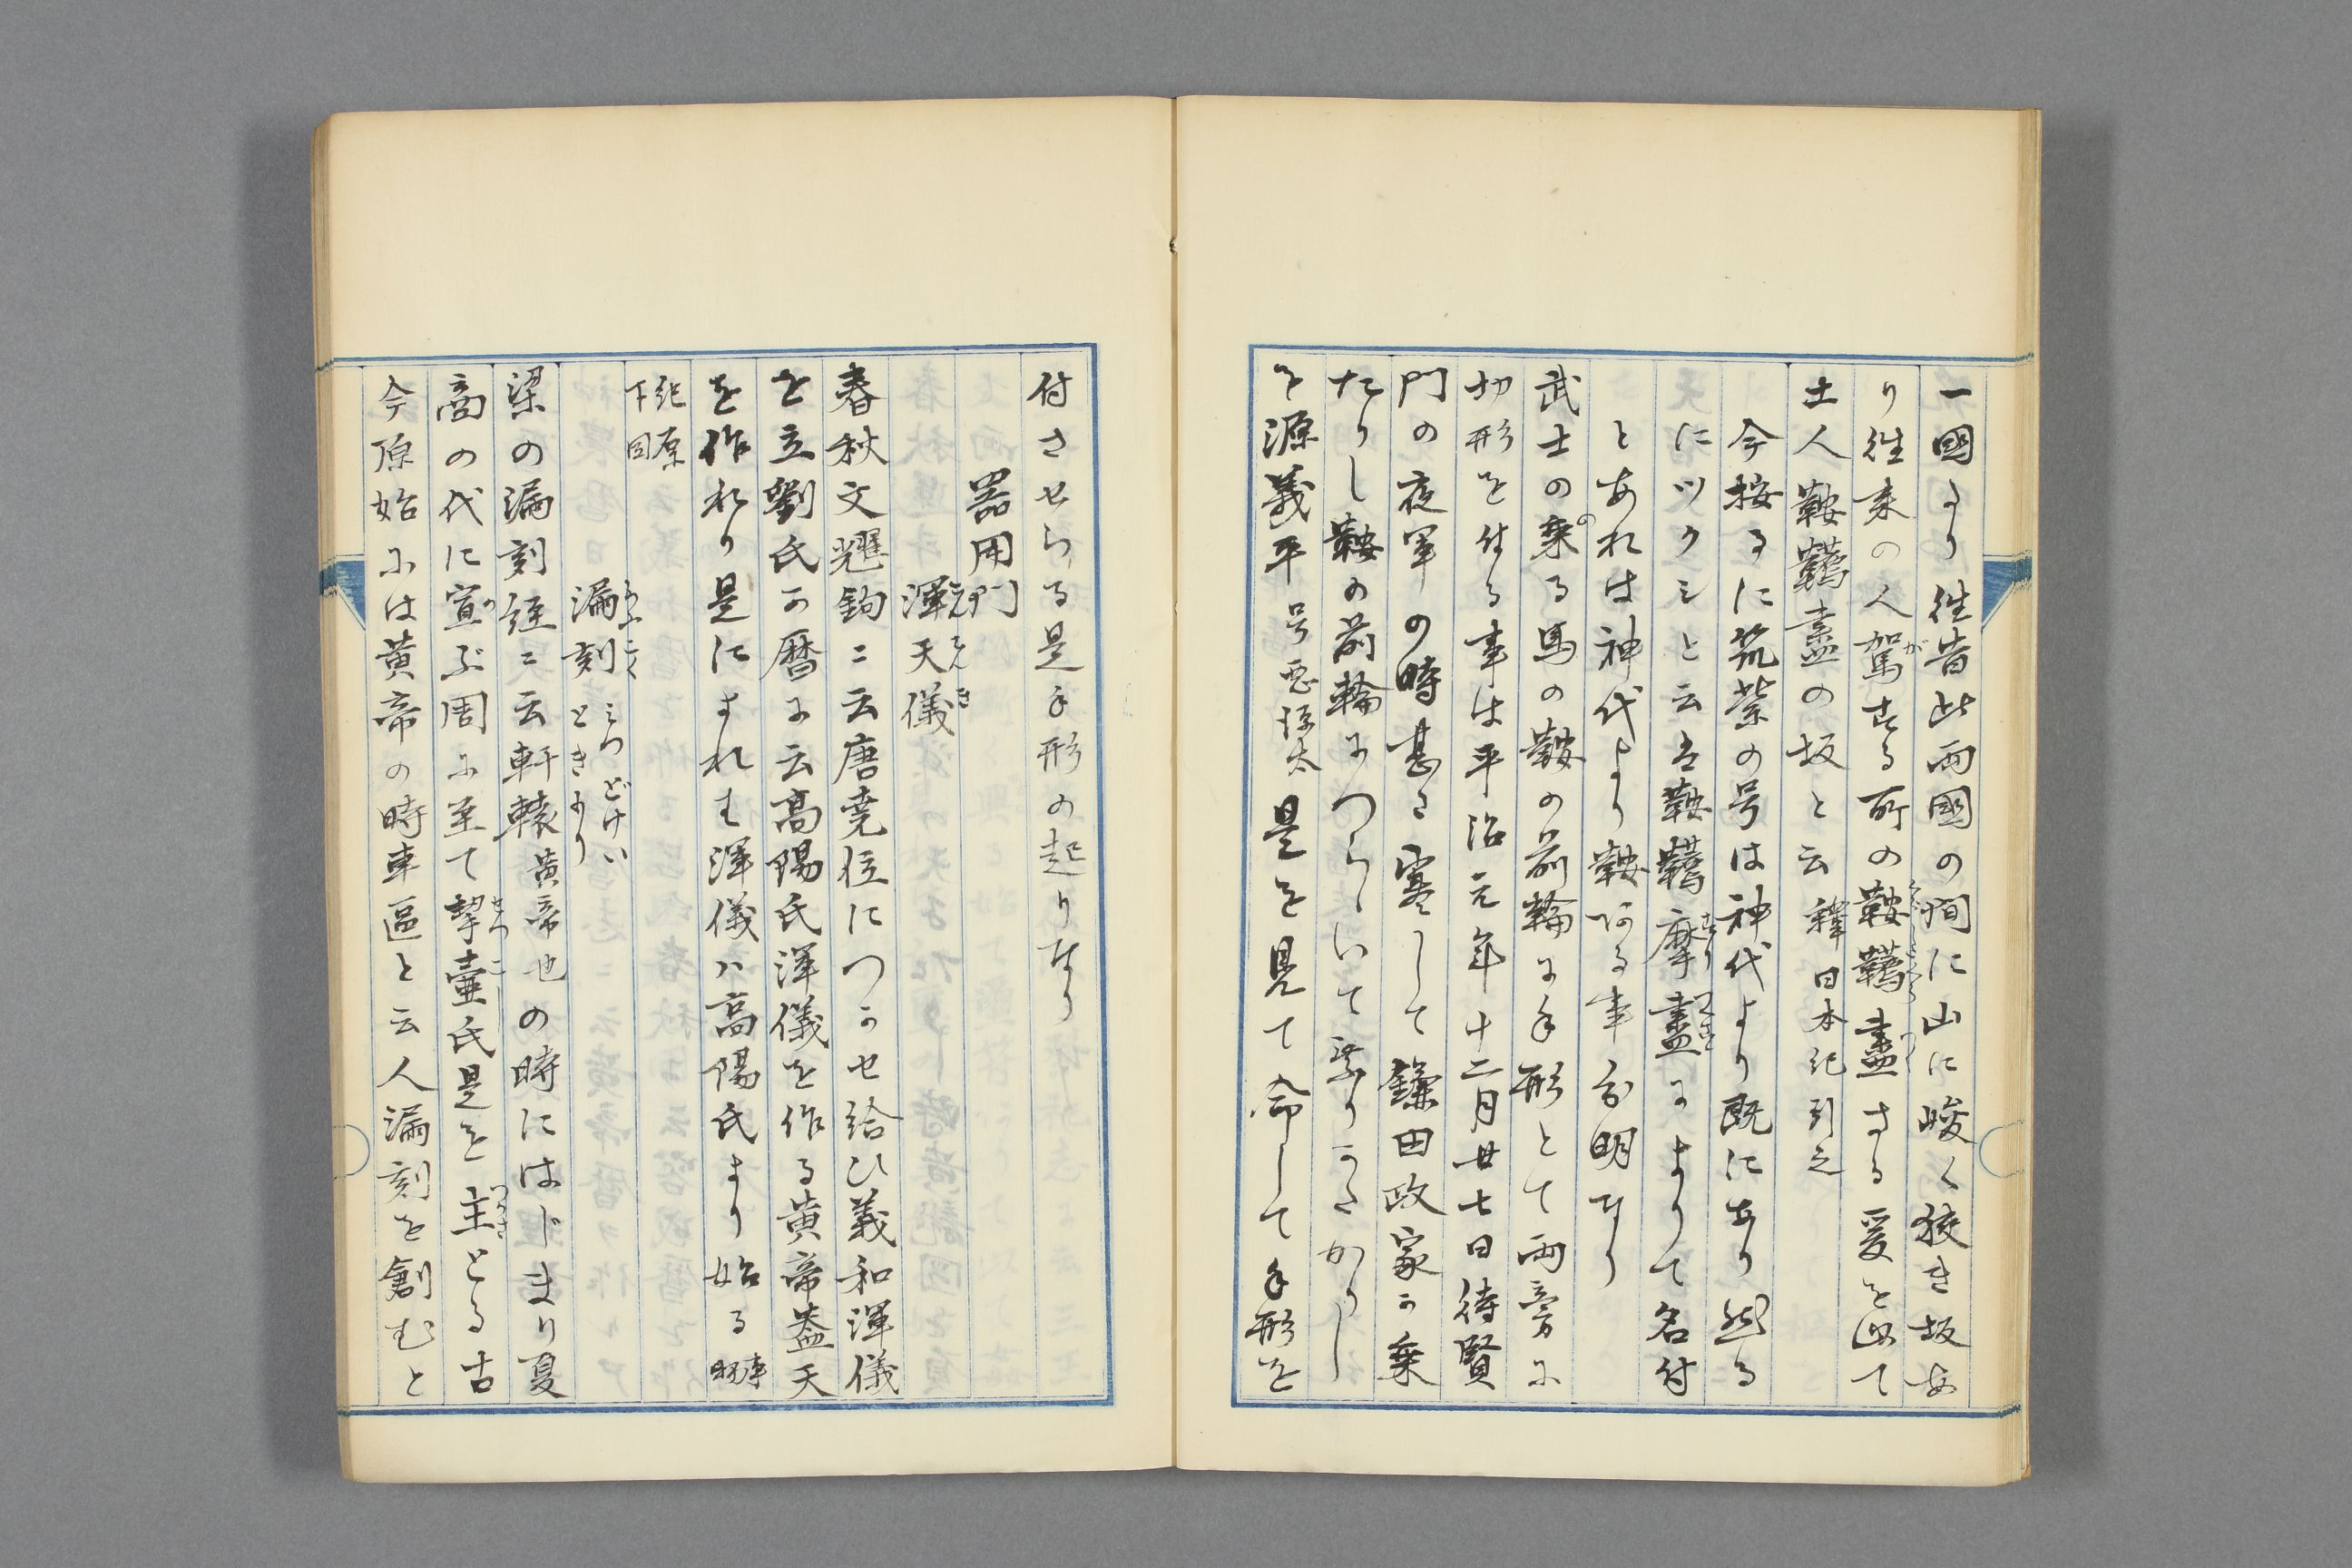 一國より往昔此両國の間に山に峻く狭き坂あ
り往来の人駕する所の鞍韉盡さる爰を以て
土人鞍韉盡の坂と云 釋日本紀引之
今按るに筑紫の号は神代より既にあり然る
にツクシと云は鞍韉摩盡によりて名付
とあれは神代より鞍ある事分明なり
武士の乗る馬の鞍の前輪に手形とて両旁に
切形を付る事は平治元年十二月廿七日待賢
門の夜軍の時甚た寒して鎌田政家か乗
たりし鞍の前輪につらゝいて乗りうたかりし
を源義平 号悪源太 是を見て命して手形を
付させらる是手形の起りなり
器用門
渾天儀
春秋文耀鉤ニ云唐堯位につかせ給ひ義和渾儀
を立劉氏か暦に云高陽氏渾儀を作る黄帝盖天
を作れり是によれは渾儀ハ高陽氏より始る 事物
紀原下同
漏刻 みつどけい ときより
梁の漏刻経ニ云軒轅 黄帝也 の時にはじまり夏
商の代に宣ぶ周に至て挈壷氏是を主とる古
今原始には黄帝の時車區と云人漏刻を創むと